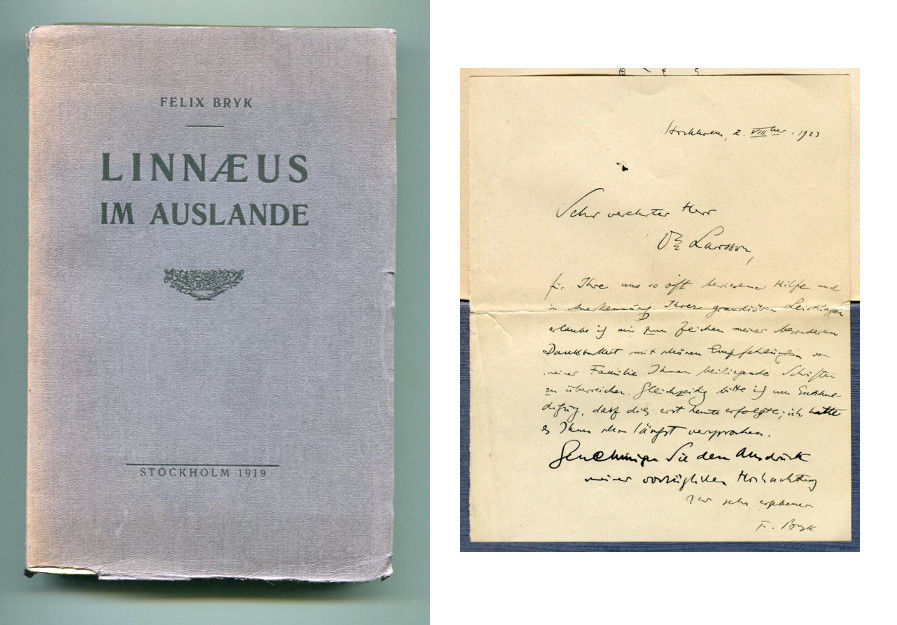 FELIX BRYK
LINNÆUS
IM AUSLANDE
STOCKHOLM 1919
Stockholm, 2. VIII 1923
Sehr verehrter Herr
Dr Larsson,
für Ihre uns so oft bewiesene Hilfe und
in Anerkennung Ihrer grandiosen Leistungen
erlaube ich mir zum Zeichen meiner besonderen
Dankbarkeit mit schönen Empfehlungen von
meiner Familie Ihnen beiliegende Schriften
zu überreichen. Gleichzeitig bitte ich um Entschul-
digung, dass dies erst heute erfolgte; ich hatte
es Ihnen schon längst versprochen.
Genehmigen Sie den Ausdruck
meiner vorzüglichen Hochachtung
Ihr sehr ergebener
F. Bryk